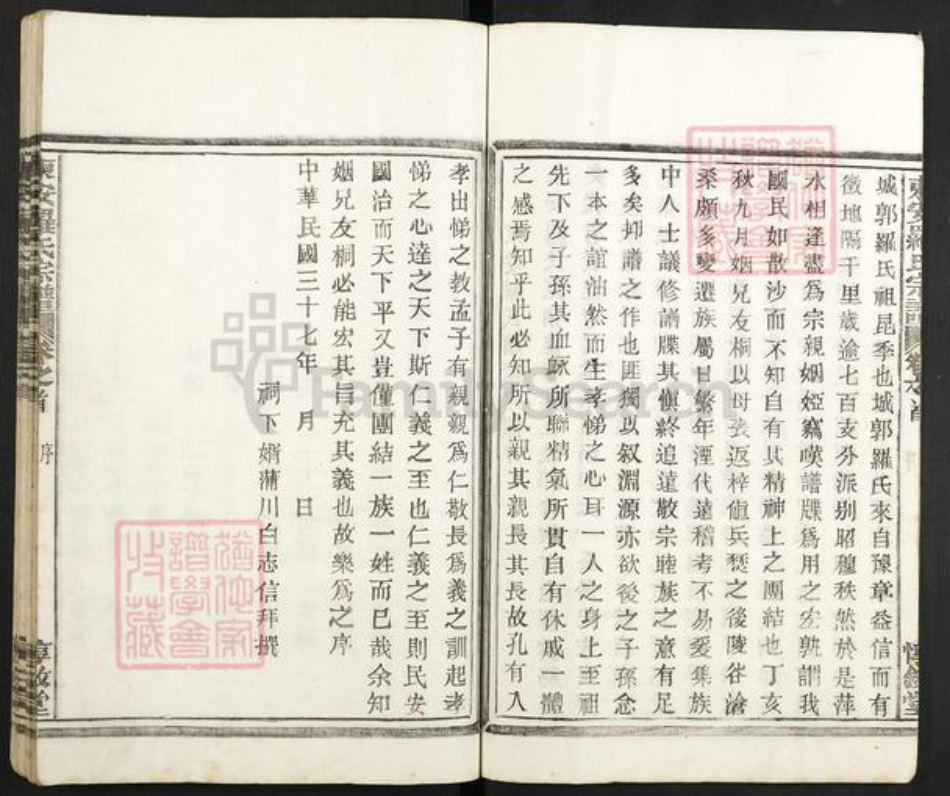 東安羅氏宗譜 卷之首
惇敘堂
城郭羅氏祖昆季也城郭羅氏來自豫章益信而有
徵地隔千里歲逾七百支分派別昭穆秩然於是萍
水相逢盡爲宗親姻婭竊嘆譜牒爲用之宏孰謂我
國民如散沙而不知自有其精神上之團結也丁亥
秋九月姻兄友桐以母喪返梓值兵燹之後陵谷滄
桑頗多變遷族屬日繁年湮代遠稽考不易爰集族
中人士議修譜牒其愼終追遠敬宗睦族之意有足
多矣抑譜之作也匪獨以叙淵源亦欲後之子孫念
一本之誼油然而生孝悌之心耳一人之身上至祖
先下及子孫其血脉所聯精氣所貫自有休戚一體
之感焉知乎此必知所以親其親長其長故孔有入
孝出悌之教孟子有親親爲仁敬長爲義之訓起孝
悌之心達之天下斯仁義之至也仁義之至則民安
國治而天下平又豈僅團結一族一姓而已哉余知
姻兄友桐必能宏其旨充其義也故樂爲之序
中華民國三十七年 月 日
祠下婿蒲川白志信拜撰
東安羅氏宗譜 卷之首
序
惇敘堂
FamilySearch
譜學會
收藏